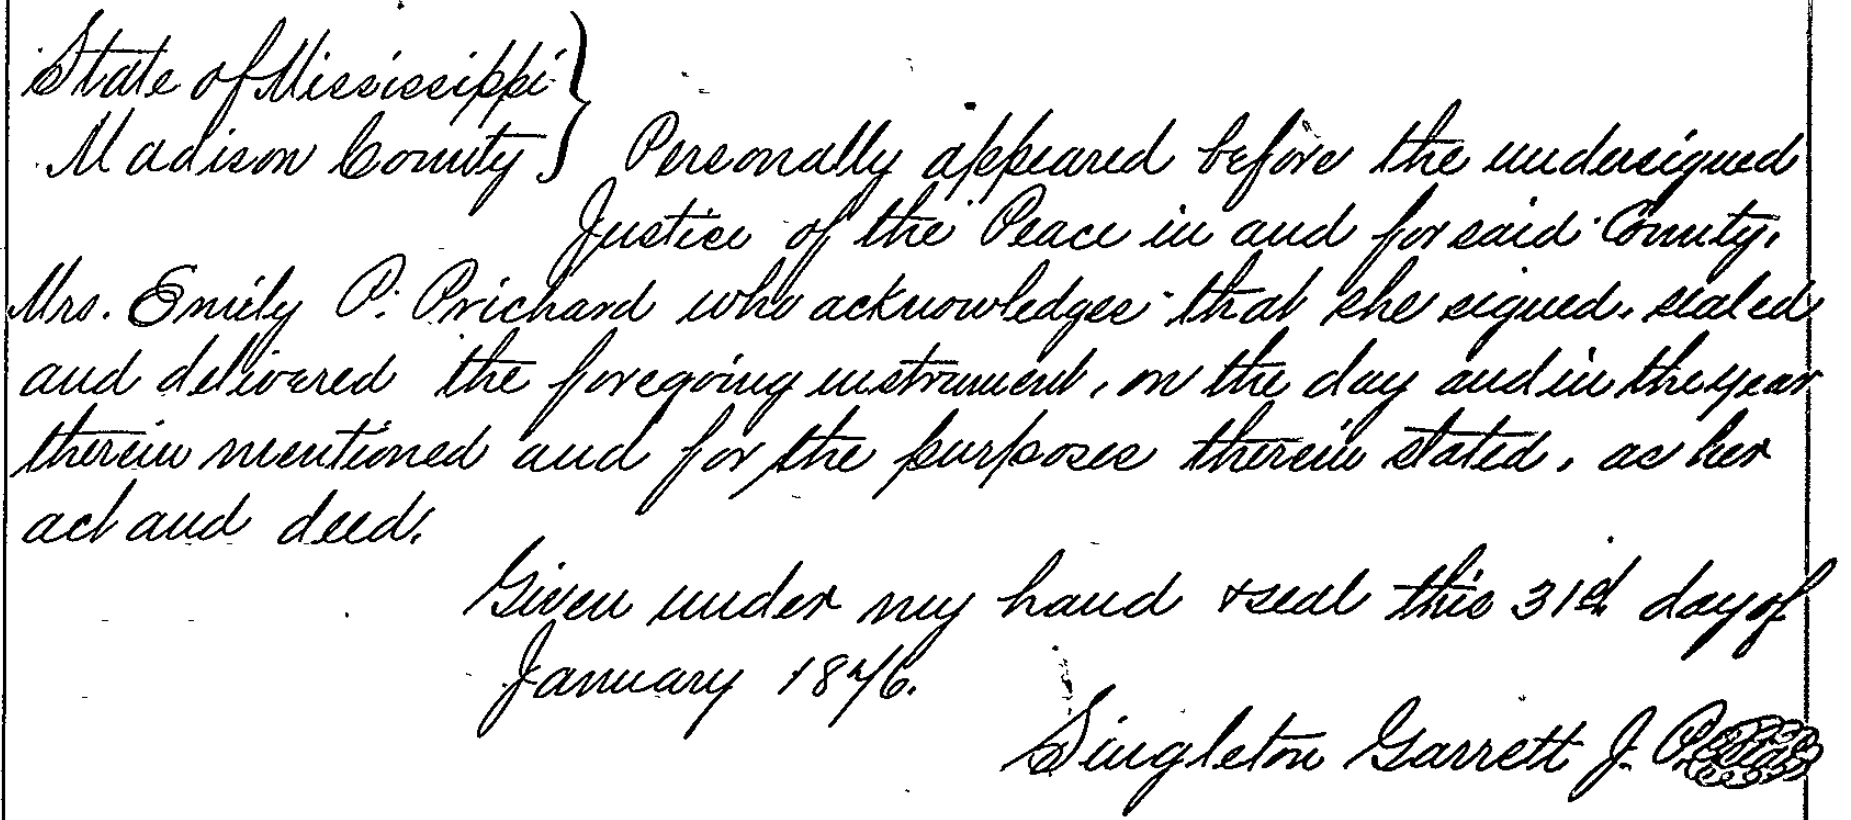 State of Mississippi }
Madison County } Personally appeared before the undersigned
Justice of the Peace in and for said County,
Mrs. Emily P. Prichard who acknowledges that she signed, sealed
and delivered the foregoing instrument, on the day and in the year
therein mentioned and for the purposes therein stated, as her
act and deed.
Given under my hand & seal this 31st day of
January 1876.
Singleton Garrett J. P. Seal